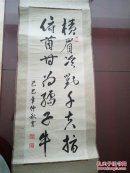 横眉冷对千夫指
俯首甘为孺子牛
己巳年仲秋书